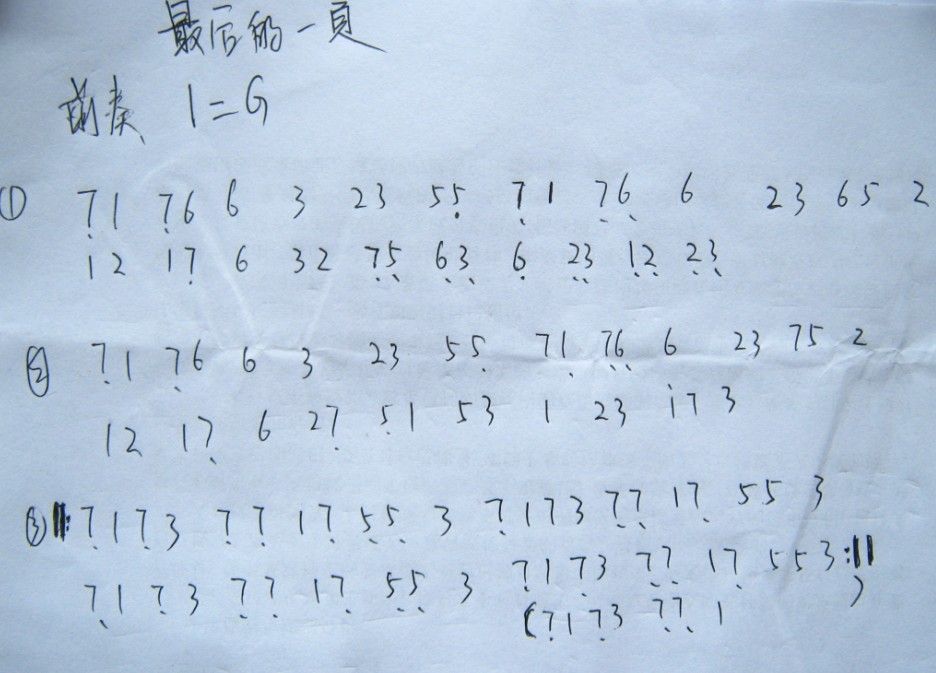 最后的一頁
前奏 1=G
① 7̣1 7̣6 6 3 23 55̣ 7̣1 7̣6̣ 6 23 65 2
12 17̣ 6 32 7̣5̣ 6̣3̣ 6̣ 2̣3̣ 1̣2̣ 2̣3̣
② 7̣1 7̣6 6 3 23 55̣ 71̣ 7̣6̣ 6 23 75 2
12 17̣ 6 27̣ 5̣1 53 1 23 i7 3
③ ‖: 7̣17̣3 7̣7̣ 17̣ 5̣5̣ 3 7̣173 7̣7̣ 17̣ 55 3
7̣1 7̣3 7̣7̣ 17̣ 5̣5̣ 3 7̣1 7̣3 7̣7̣ 17̣ 553 :‖
(7̣1 7̣3 7̣7̣ 1 )